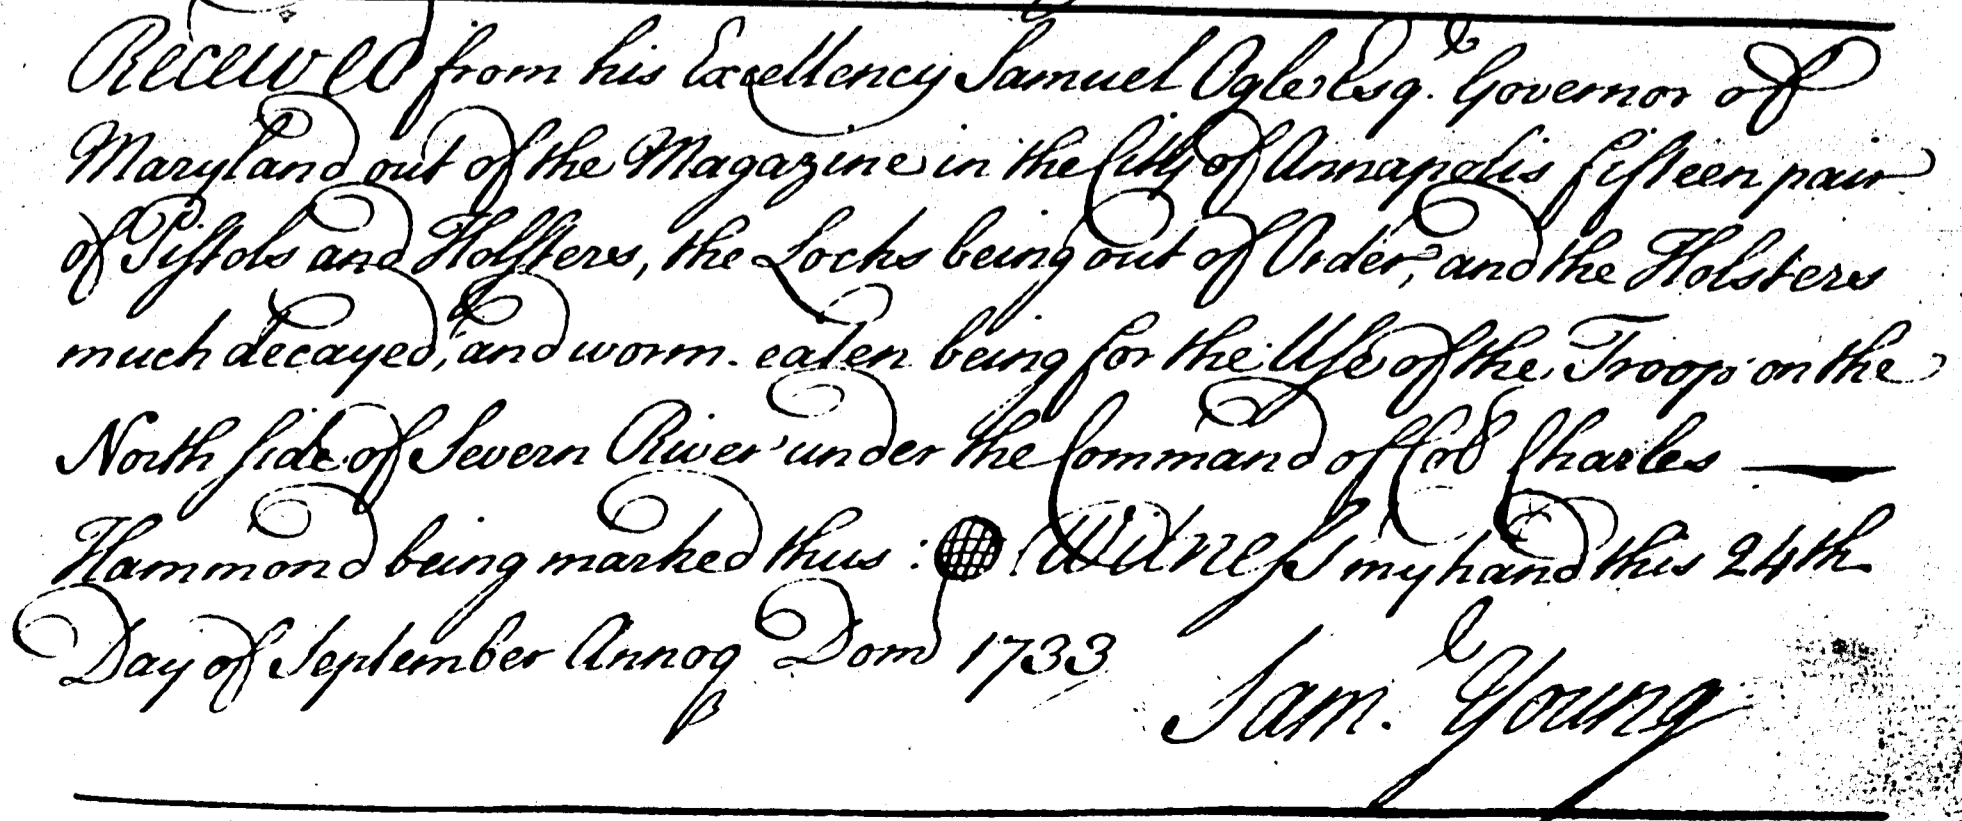 Received from his Excellency Samuel Ogle Esqr. Governor of
Maryland out of the Magazine in the City of Annapolis fifteen pair
of Piſtols and Holſters, the Locks being out of Order, and the Holsters
much decayed, and worm-eaten being for the Uſe of the Troop on the
North ſide of Severn River under the Command of Col Charles
Hammond being marked thus : Witneſs my hand this 24th
Day of September Annoq Dom 1733
Saml. Young